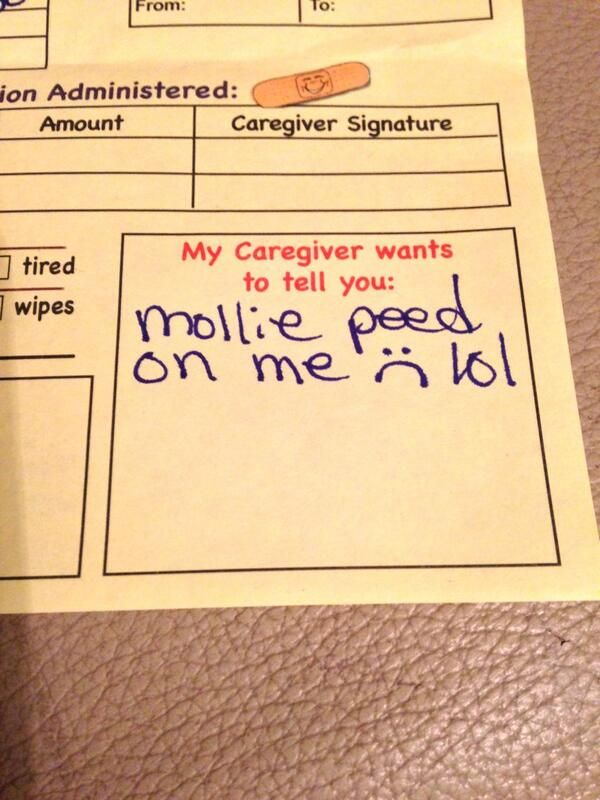 From:
To:
ion Administered:
Amount
Caregiver Signature
tired
wipes
My Caregiver wants
to tell you:
mollie peed
on me :( lol